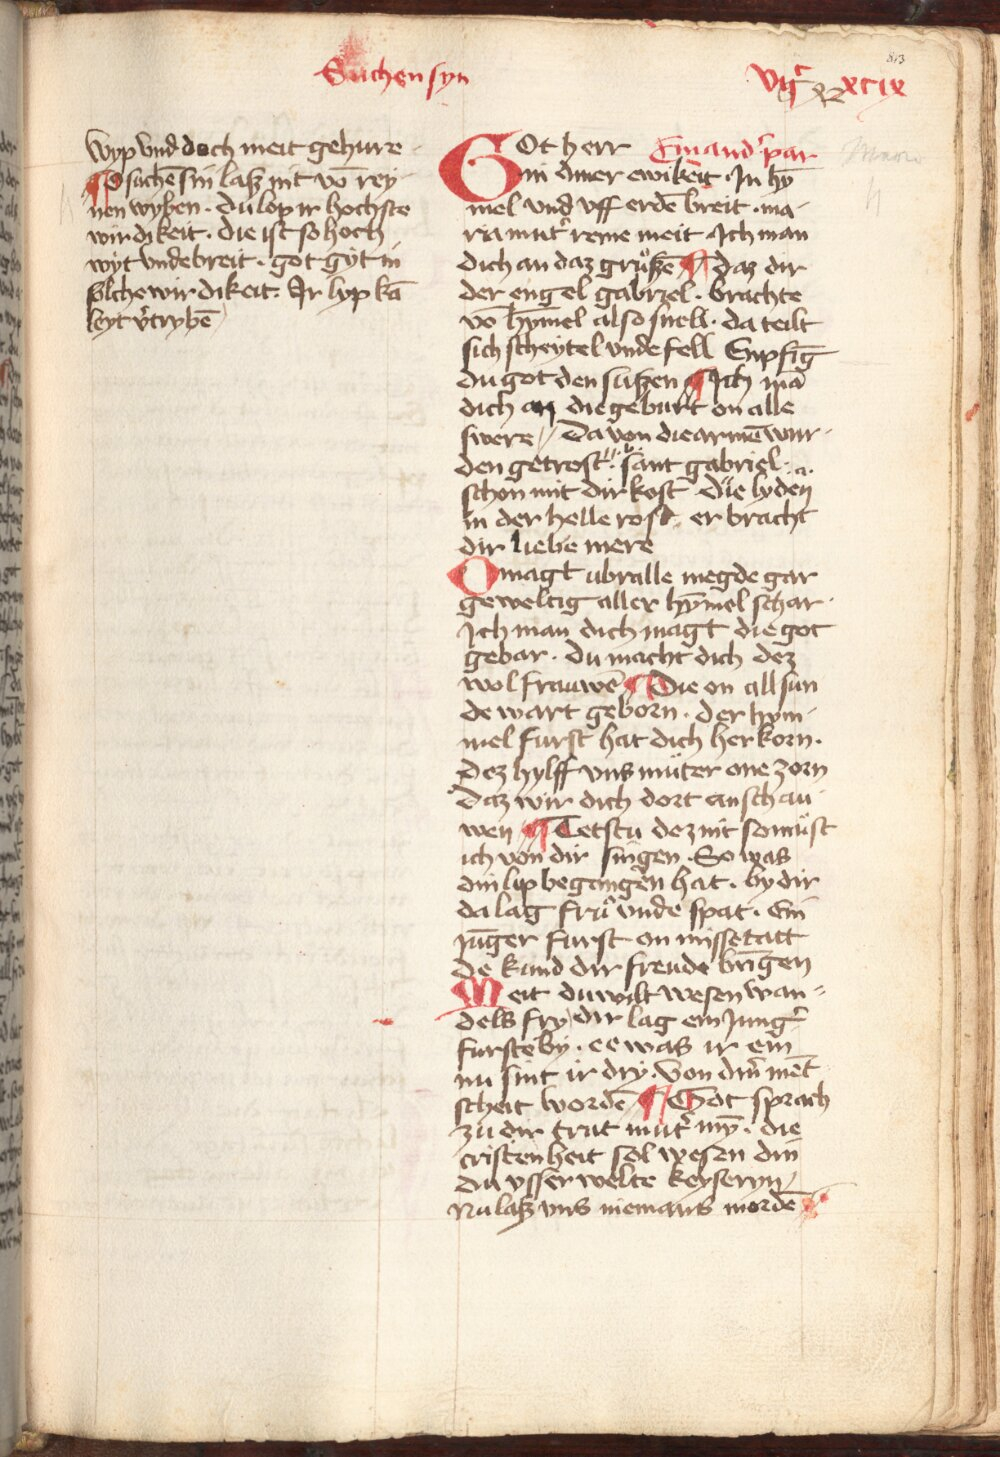 813
Suchensyn
viijᶜ xcix
wyp vnd doch meit gehure
¶ O suchēsin laß nit vō rey
nen wyben · du lop ir hochste
wirdikeit · die ist so hoch
wyt vnde breit · got gyt in
solche wirdikeit · Ir lyp kā
leyt v̓trybē
GOt herr
Ein and̓ par
in diner ewikeit · In hȳ
mel vnd vff erdē breit · ma-
ria mut̓ reine meit · Ich man
dich an daz grůße ¶ daz dir
der engel gabriel · brachte
vō hȳmel also snell · da teilt
sich scheytel vnde fell Enpfīg
du got den sußen ¶ Ich mā
dich an die geburt on alle
swere / Da von die armē wur-
den getrost · sant gabriel ·
schon mit dir kost Die lyden
in der helle rost er bracht
dir liebe mere
O magt vbr alle megde gar
geweltig aller hȳmel schar ·
Ich man dich magt die got
gebar · du macht dich dez
wol frauwē ¶ Die on all sun
de wart geborn · der hym-
mel furst hat dich her korn ·
Dez hylff vns můter one zorn
Daz wir dich dort anschau
wen ¶ Tetstu dez nit so můst
ich von dir singen · So was
din lip begangen hat · by dir
da lag frů vnde spat · Ein
junger furst on missetatt
de kund dir freude bringen
Meit du wilt wesen wan-
dels fry dir lag ein jung̓
furste by · ee was ir ein
nu sint ir dry · von din̓ mēt
scheit wordē ¶ Got sprach
zu dir trut mut̓ mȳ · die
cristenheit sol wesen din
du vsser welte keyseryn /
Nu laß vns niemans mordē